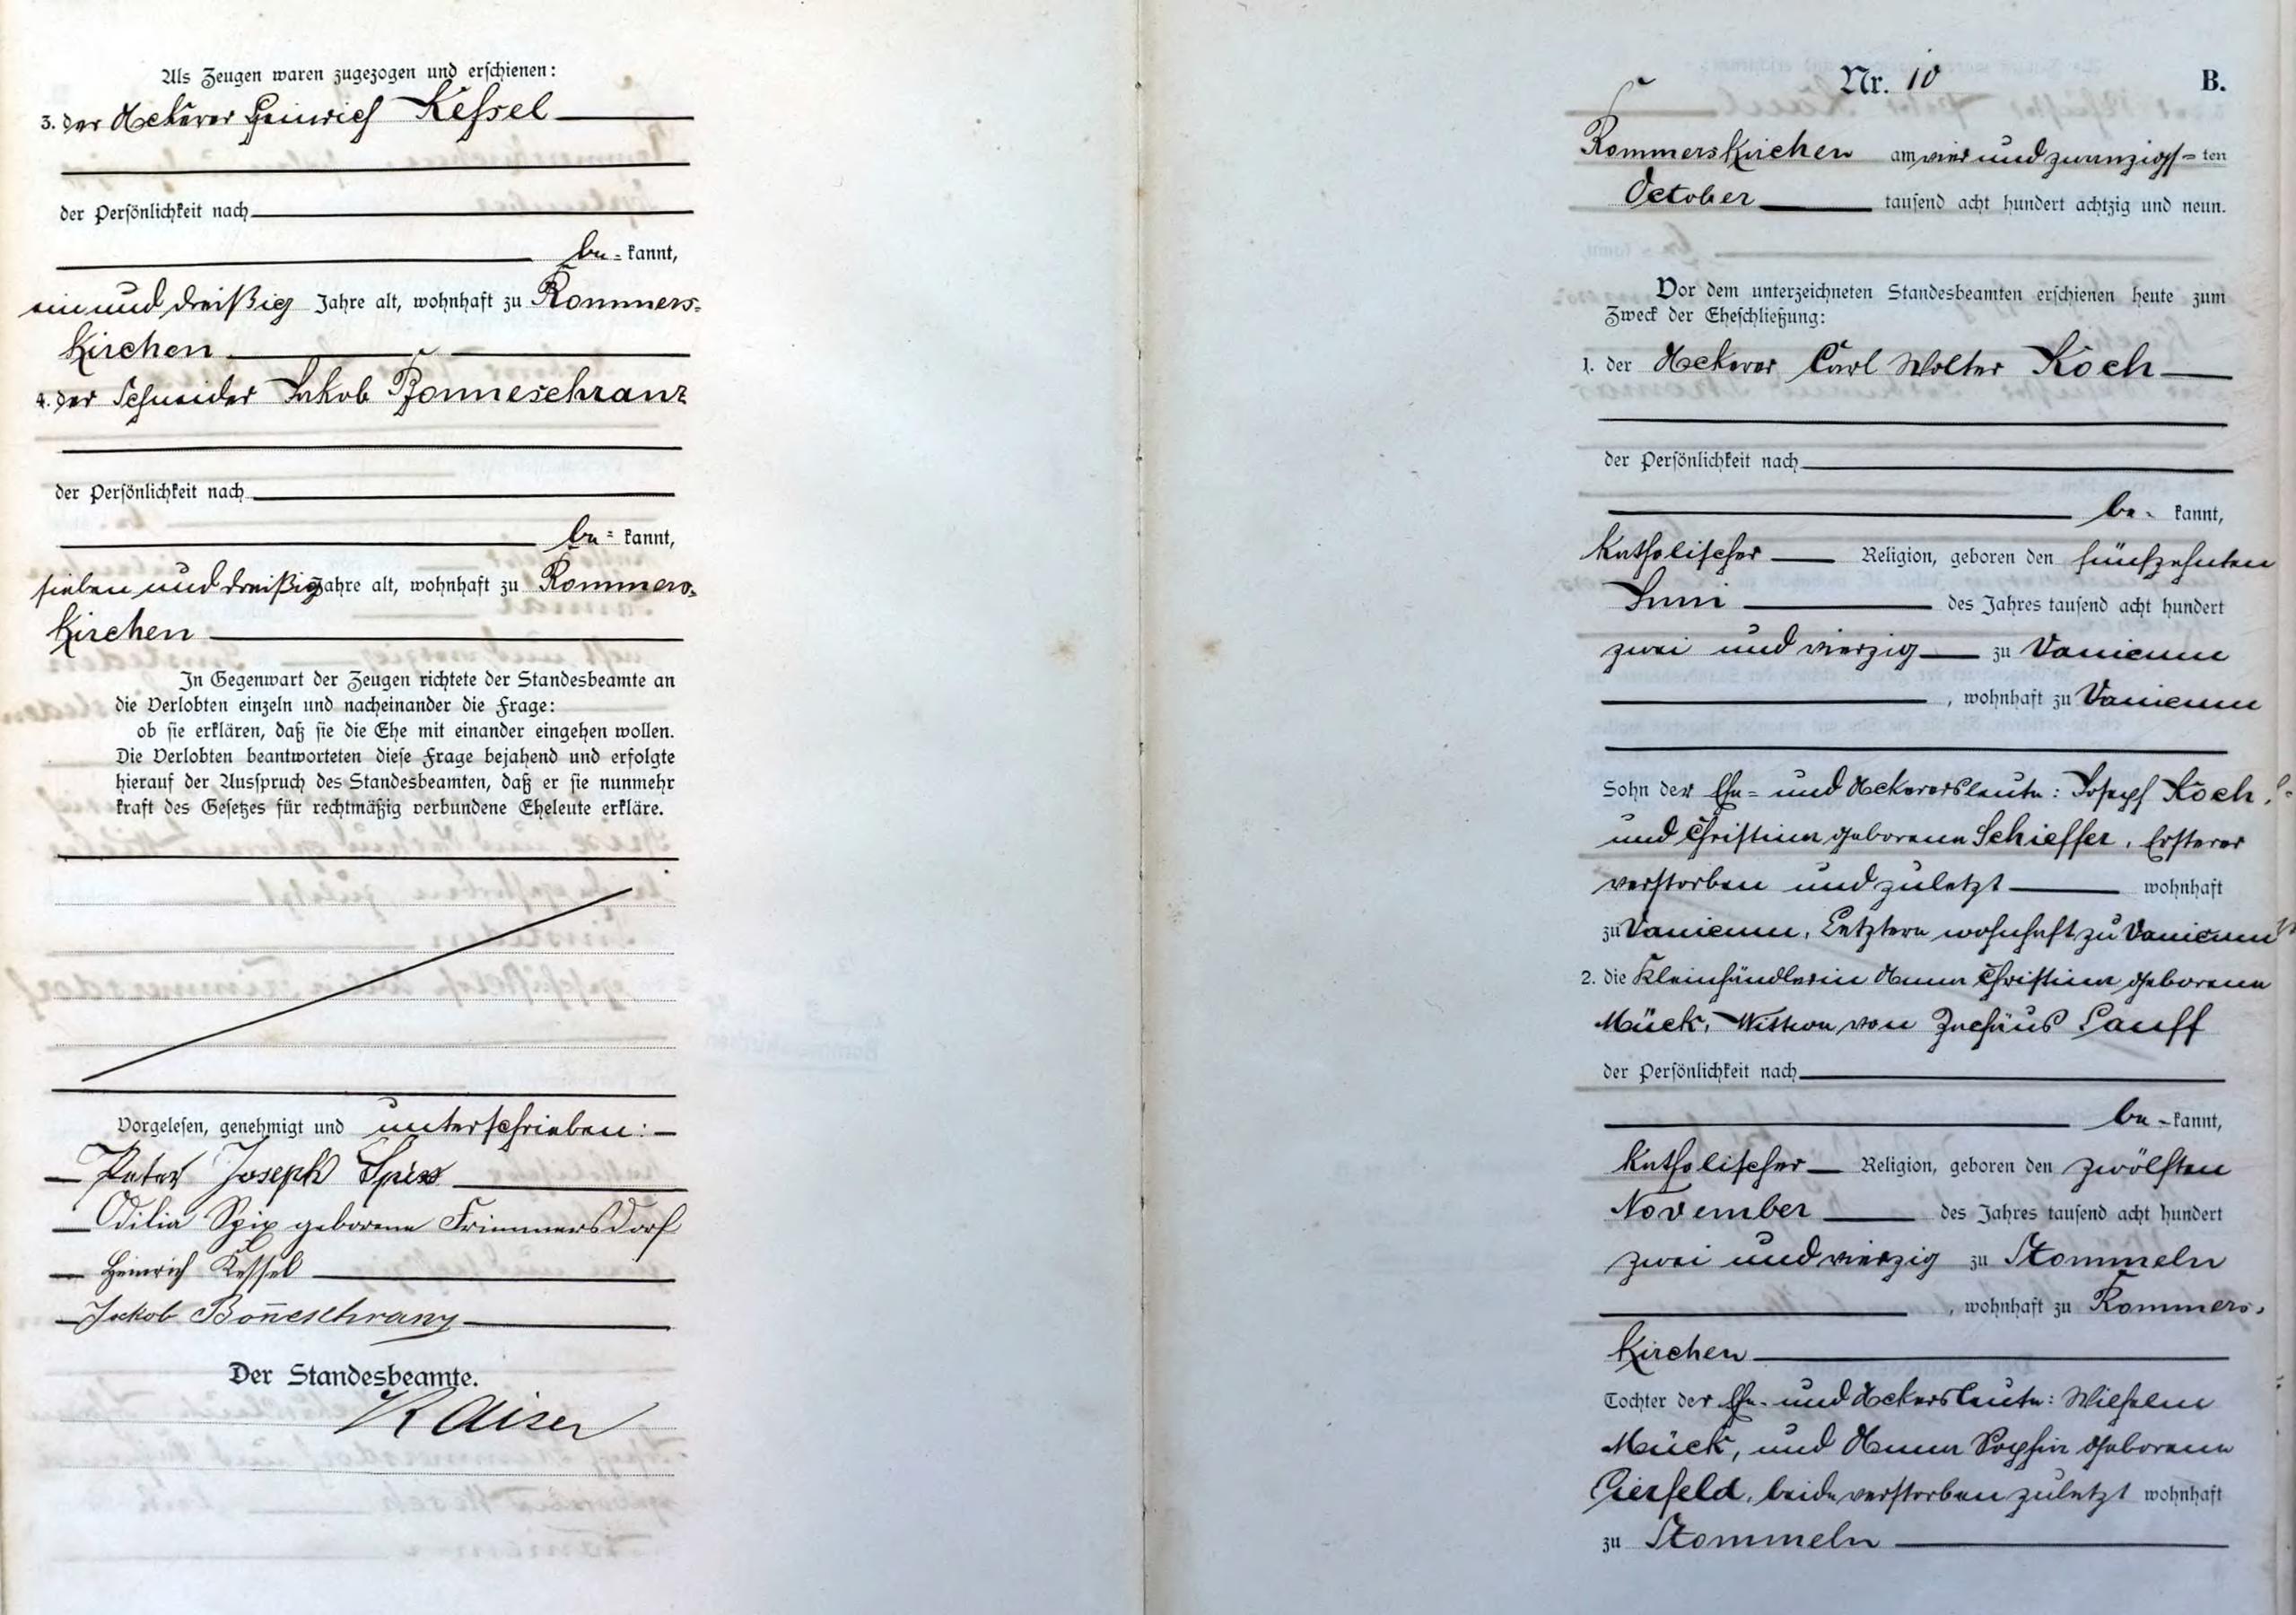 Als Zeugen waren zugezogen und erschienen:
3. der Ackerer Heinrich Kessel
der Persönlichkeit nach
be = kannt,
ein und dreißig Jahre alt, wohnhaft zu Rommers=
kirchen
4. der Schneider Jakob Bonneschranz
der Persönlichkeit nach
be = kannt,
sieben und dreißig Jahre alt, wohnhaft zu Rommers=
kirchen
In Gegenwart der Zeugen richtete der Standesbeamte an
die Verlobten einzeln und nacheinander die Frage:
ob sie erklären, daß sie die Ehe mit einander eingehen wollen.
Die Verlobten beantworteten diese Frage bejahend und erfolgte
hierauf der Ausspruch des Standesbeamten, daß er sie nunmehr
kraft des Gesetzes für rechtmäßig verbundene Eheleute erkläre.
Vorgelesen, genehmigt und unterschrieben:
Peter Joseph Spix
Odilia Spix geborene Frimmersdorf
Heinrich Kessel
Jakob Bon̄eschranz
Der Standesbeamte.
Kaiser
Nr. 10 B.
Rommerskirchen am vier und zwanzigs = ten
October tausend acht hundert achtzig und neun.
Vor dem unterzeichneten Standesbeamten erschienen heute zum
Zweck der Eheschließung:
1. der Ackerer Carl Walter Koch
der Persönlichkeit nach
be = kannt,
katholischer Religion, geboren den fünfzehnten
Juni des Jahres tausend acht hundert
zwei und vierzig zu Vanicum
, wohnhaft zu Vanicum
Sohn der Ehe = und Ackersleute: Joseph Koch,
und Christina geborene Schieffer, Ersterer
verstorben und zuletzt wohnhaft
zu Vanicum, Letztere wohnhaft zu Vanicum
2. die Kleinhändlerin Anna Christina geborene
Mück, Wittwe von Zachäus Lauff
der Persönlichkeit nach
be = kannt,
katholischer Religion, geboren den zwölften
November des Jahres tausend acht hundert
zwei und vierzig zu Stommeln
, wohnhaft zu Rommers=
kirchen
Tochter der Ehe = und Ackersleute: Wilhelm
Mück, und Anna Sophia geborene
Cierfeld, beide verstorben zuletzt wohnhaft
zu Stommeln